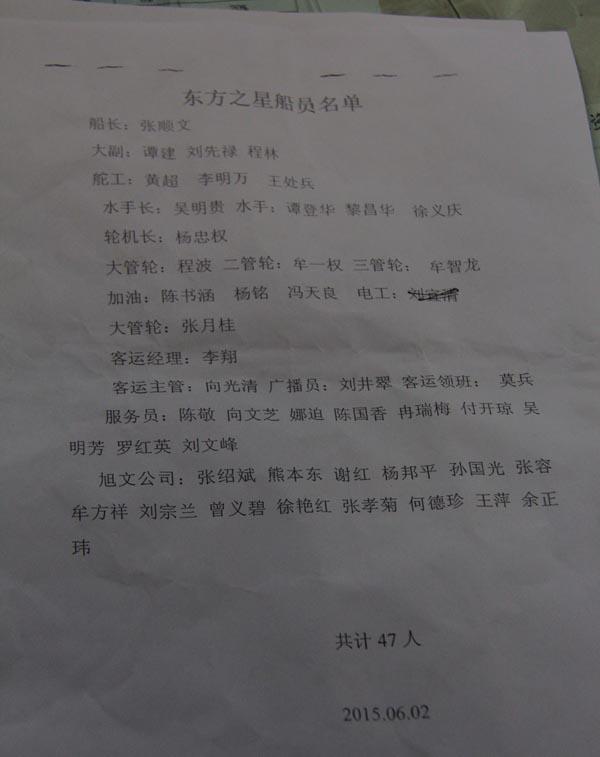 东方之星船员名单
船长：张顺文
大副：谭建 刘先禄 程林
舵工：黄超 李明万 王处兵
水手长：吴明贵 水手：谭登华 黎昌华 徐义庆
轮机长：杨忠权
大管轮：程波 二管轮：牟一权 三管轮： 牟智龙
加油：陈书涵 杨铭 冯天良 电工：
大管轮：张月桂
客运经理：李翔
客运主管：向光清 广播员：刘井翠 客运领班： 莫兵
服务员：陈敬 向文芝 娜迫 陈国香 冉瑞梅 付开琼 吴
明芳 罗红英 刘文峰
旭文公司：张绍斌 熊本东 谢红 杨邦平 孙国光 张容
牟方祥 刘宗兰 曾义碧 徐艳红 张孝菊 何德珍 王萍 余正
玮
共计 47 人
2015.06.02